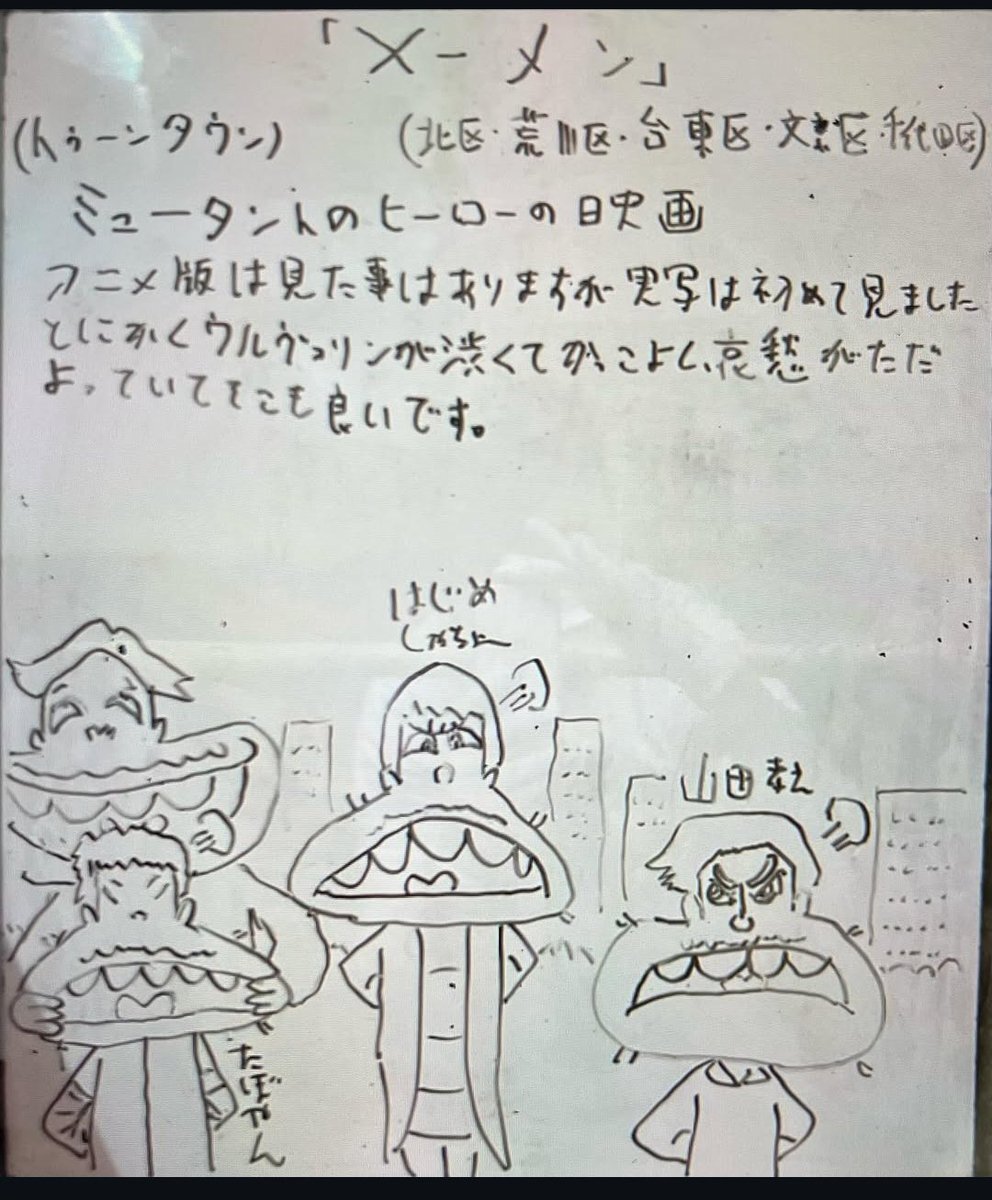 「メーメン」
(トゥーンタウン) (北区・荒川区・台東区・文京区・千代田区)
ミュータントのヒーローの日映画
アニメ版は見た事はありますが実写は初めて見ました
とにかくウルヴァリンが渋くてかっこよし、哀愁がただ
よっていてそこも良いです。
はじめ
しゃちょー
山田孝之
たぼやん